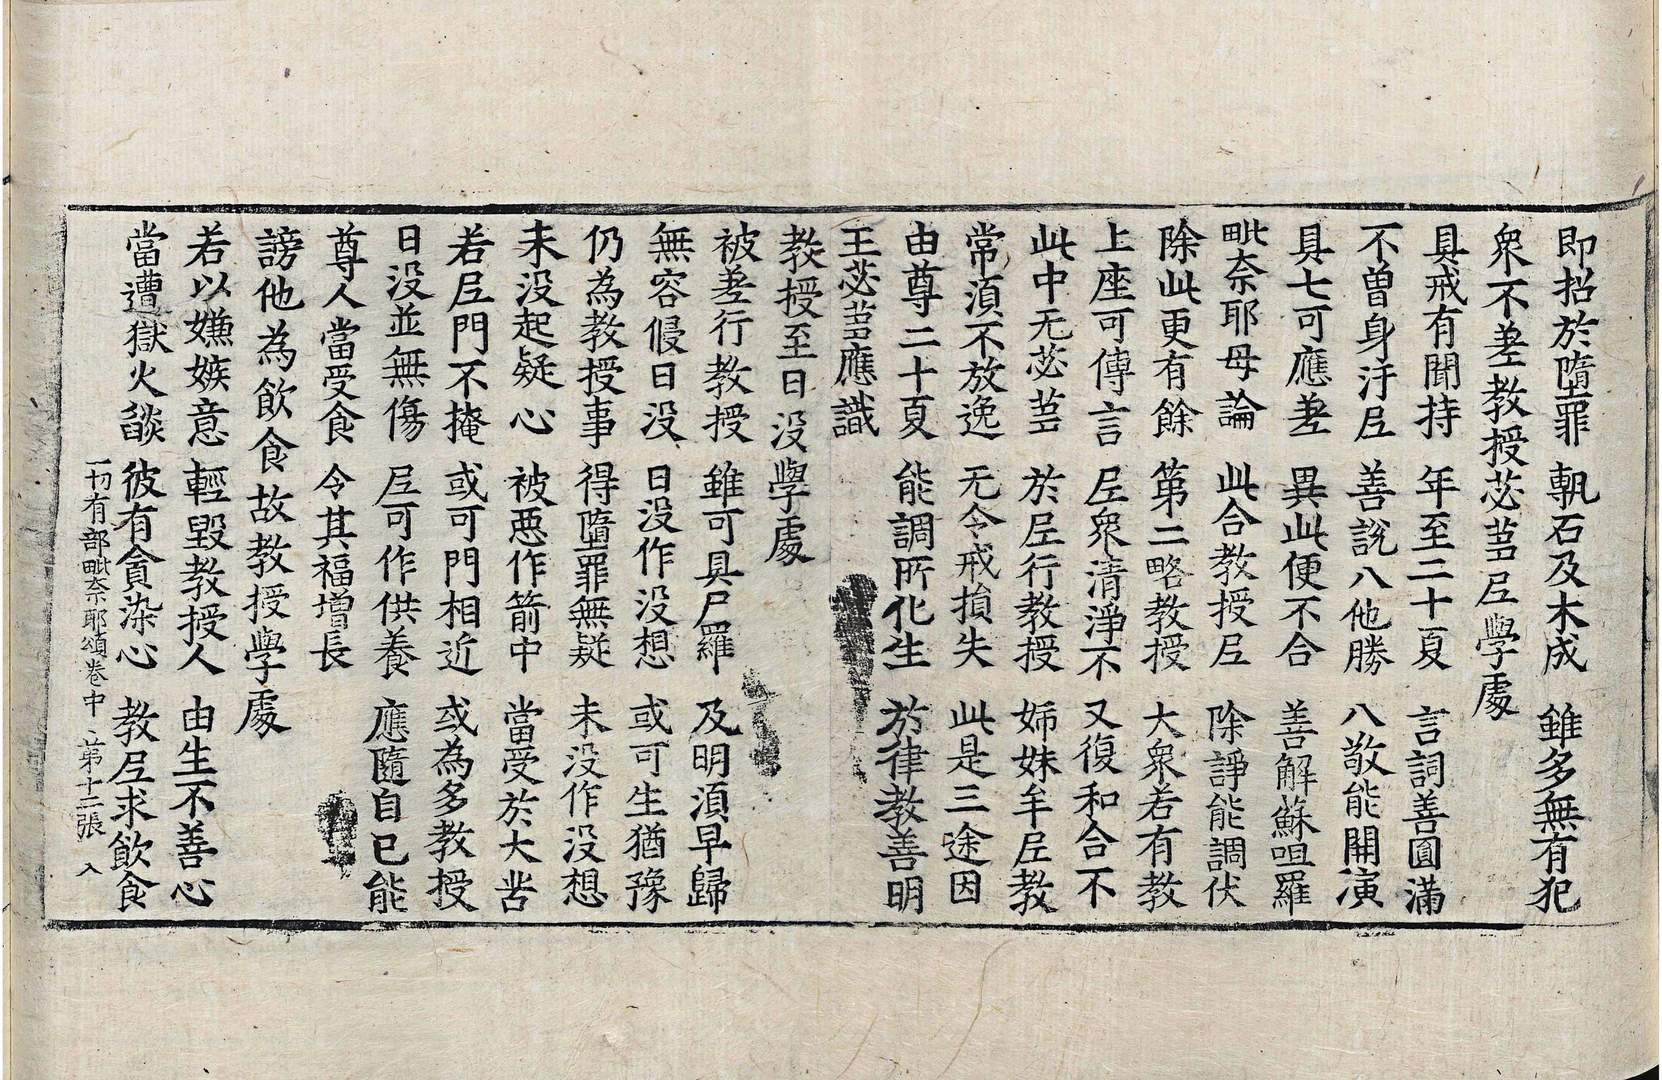 即招於墮罪 執石及木成 雖多無有犯
衆不差教授苾芻尼學處
具戒有聞持 年至二十夏 言詞善圓滿
不曾身汙尼 善說八他勝 八敬能開演
具七可應差 異此便不合 善解蘇呾羅
毗奈耶母論 此合教授尼 除諍能調伏
除此更有餘 第二略教授 大衆若有教
上座可傳言 尼衆清淨不 又復和合不
此中无苾芻 於尼行教授 姉妹牟尼教
常湏不放逸 无令戒損失 此是三途因
由尊二十夏 能調所化生 於律教善明
王苾芻應識
教授至日没學處
被差行教授 雖可具尸羅 及明湏早歸
無容侵日没 日没作没想 或可生猶豫
仍為教授事 得墮罪無疑 未没作没想
未没起疑心 被惡作箭中 當受於大苦
若尼門不掩 或可門相近 或為多教授
日没並無傷 尼可作供養 應隨自已能
尊人當受食 令其福增長
謗他為飲食故教授學處
若以嫌嫉意 輕毀教授人 由生不善心
當遭獄火燄 彼有貪染心 教尼求飲食
一切有部毗奈耶頌卷中 第十二張 入